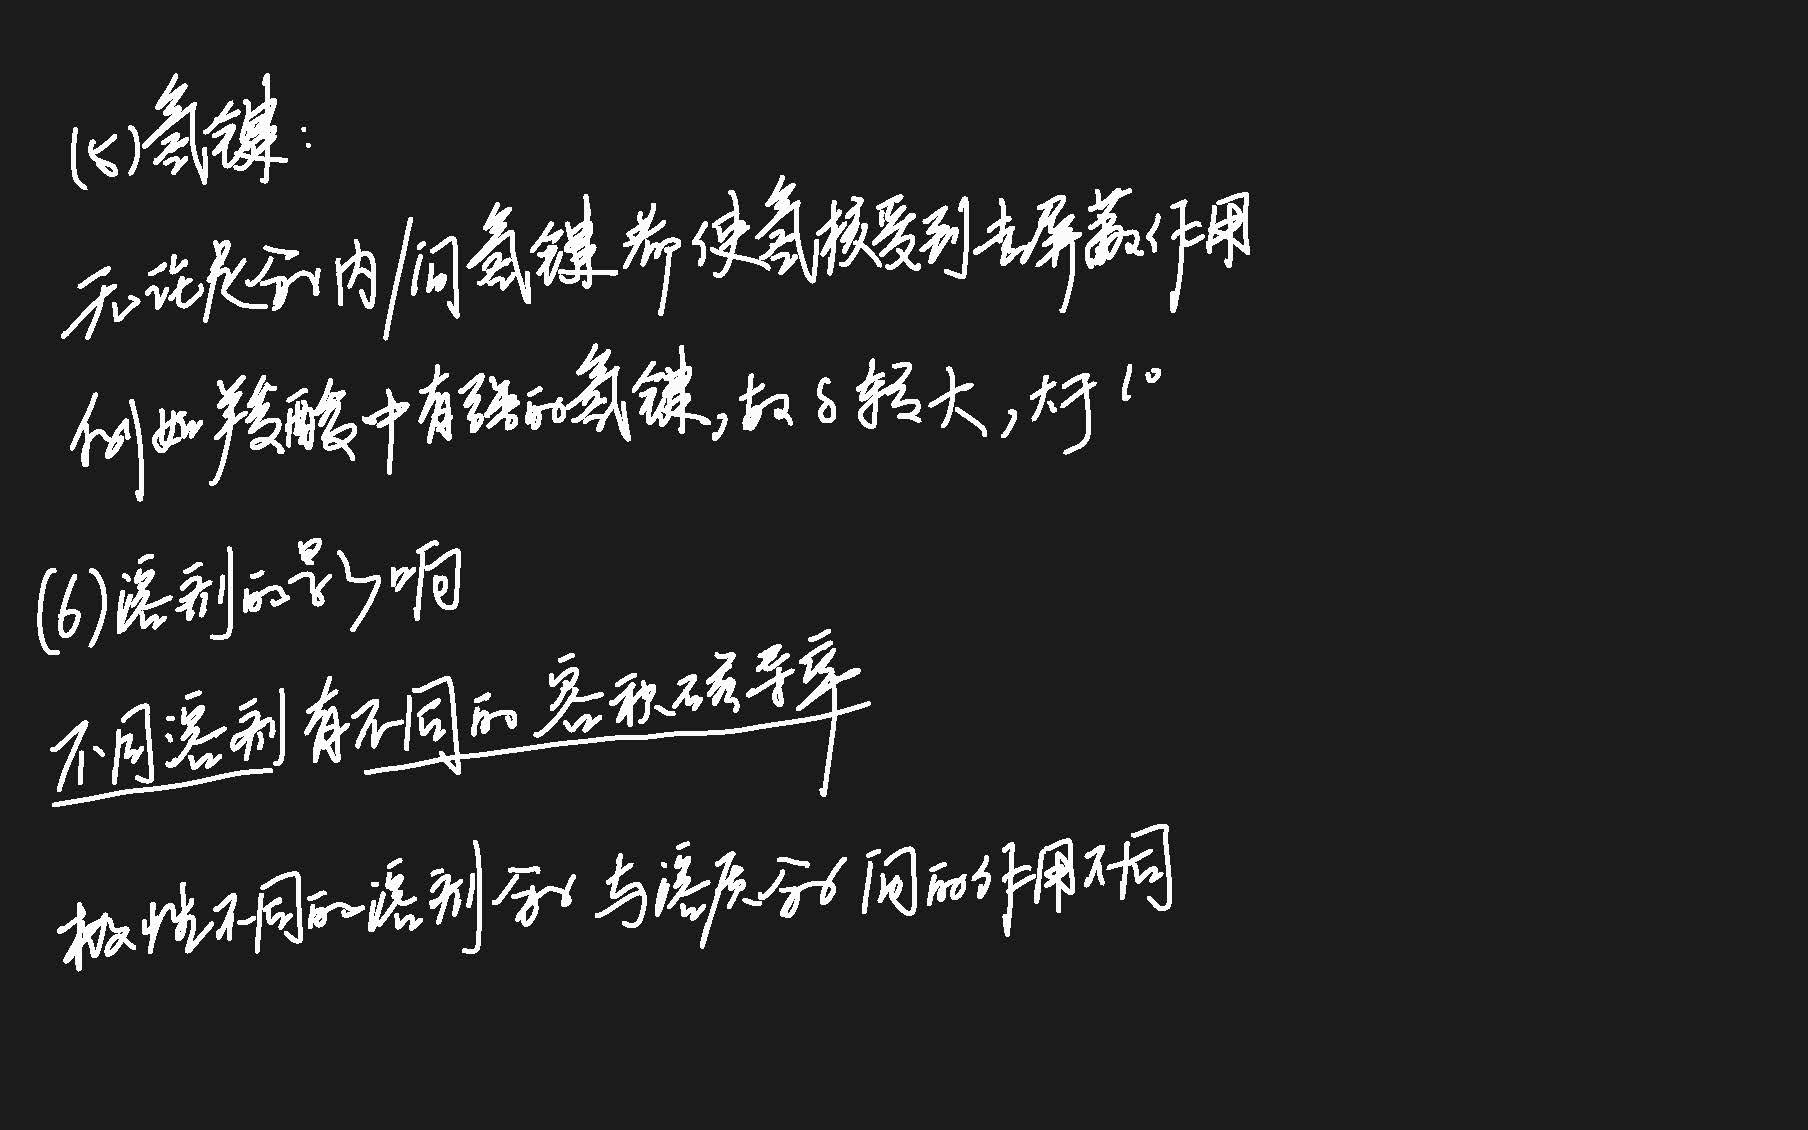 (5)氢键：
无论是分子内/间氢键都使氢核受到去屏蔽作用
例如羧酸中有强的氢键，故δ较大，大于10
(6)溶剂的影响
不同溶剂有不同的容积磁导率
极性不同的溶剂分子与溶质分子间的作用不同